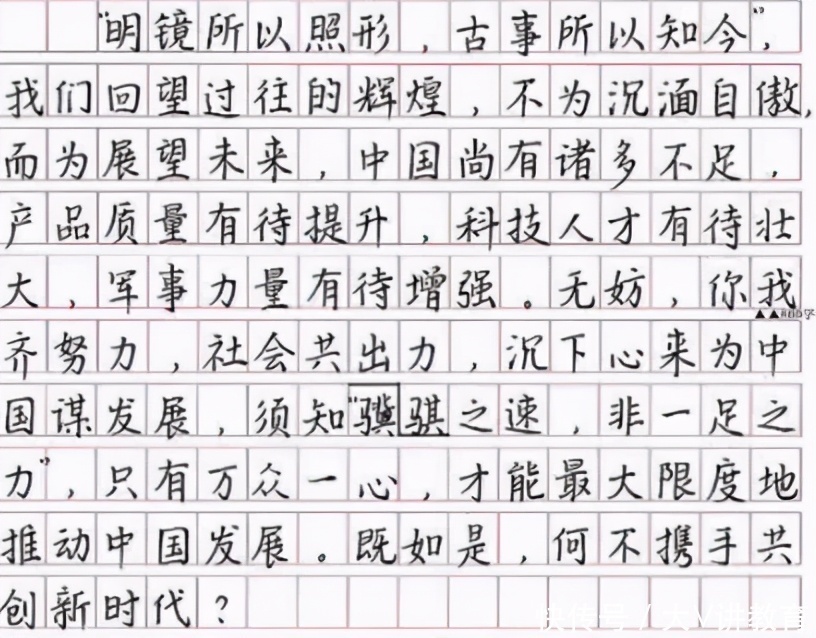 “明镜所以照形，古事所以知今”，
我们回望过往的辉煌，不为沉湎自傲，
而为展望未来，中国尚有诸多不足，
产品质量有待提升，科技人才有待壮
大，军事力量有待增强。无妨，你我
齐努力，社会共出力，沉下心来为中
国谋发展，须知“骥骐之速，非一足之
力”，只有万众一心，才能最大限度地
推动中国发展。既如是，何不携手共
创新时代？
快传号／大V讲教育